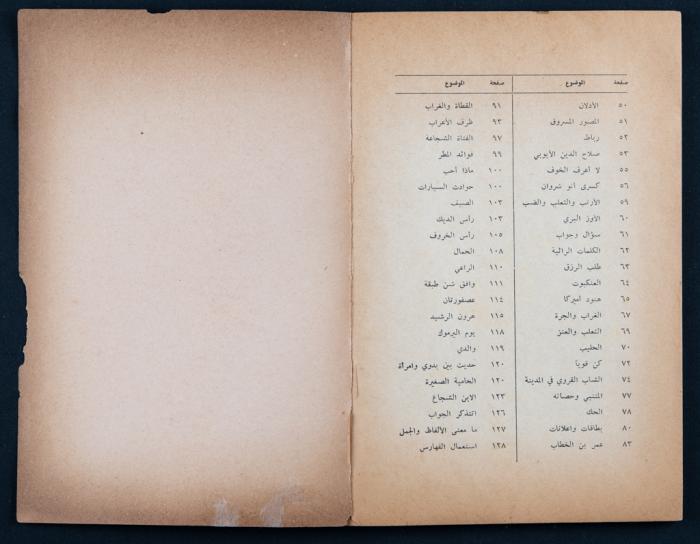 صفحة الموضوع
٥٠ الأذلان
٥١ المصور المسروق
٥٢ رباط
٥٣ صلاح الدين الأيوبي
٥٥ لا أعرف الخوف
٥٦ كسرى أنو شروان
٥٩ الأرنب والثعلب والضب
٦٠ الأوز البري
٦١ سؤال وجواب
٦٢ الكلمات الرائية
٦٣ طلب الرزق
٦٤ العنكبوت
٦٥ هنود أميركا
٦٧ الغراب والجرة
٦٩ الثعلب والعنز
٧٠ الحليب
٧٢ كن قوياً
٧٤ الشاب القروي في المدينة
٧٧ المتنبي وحصانه
٧٨ الحك
٨٠ بطاقات واعلانات
٨٣ عمر بن الخطاب
صفحة الموضوع
٩١ القطاة والغراب
٩٣ ظرف الأعراب
٩٧ الفتاة الشجاعة
٩٩ فوائد المطر
١٠٠ ماذا أحب
١٠٠ حوادث السيارات
١٠٣ الصيف
١٠٣ رأس الديك
١٠٥ رأس الخروف
١٠٨ الحمال
١١٠ الراعي
١١١ وافق شن طبقة
١١٤ عصفورتان
١١٥ هرون الرشيد
١١٨ يوم اليرموك
١١٩ والدي
١٢٠ حديث بين بدوي وامرأة
١٢٠ المحامية الصغيرة
١٢٣ الابن الشجاع
١٢٦ اتتذكر الجواب
١٢٧ ما معنى الألفاظ والجمل
١٢٨ استعمال الفهارس